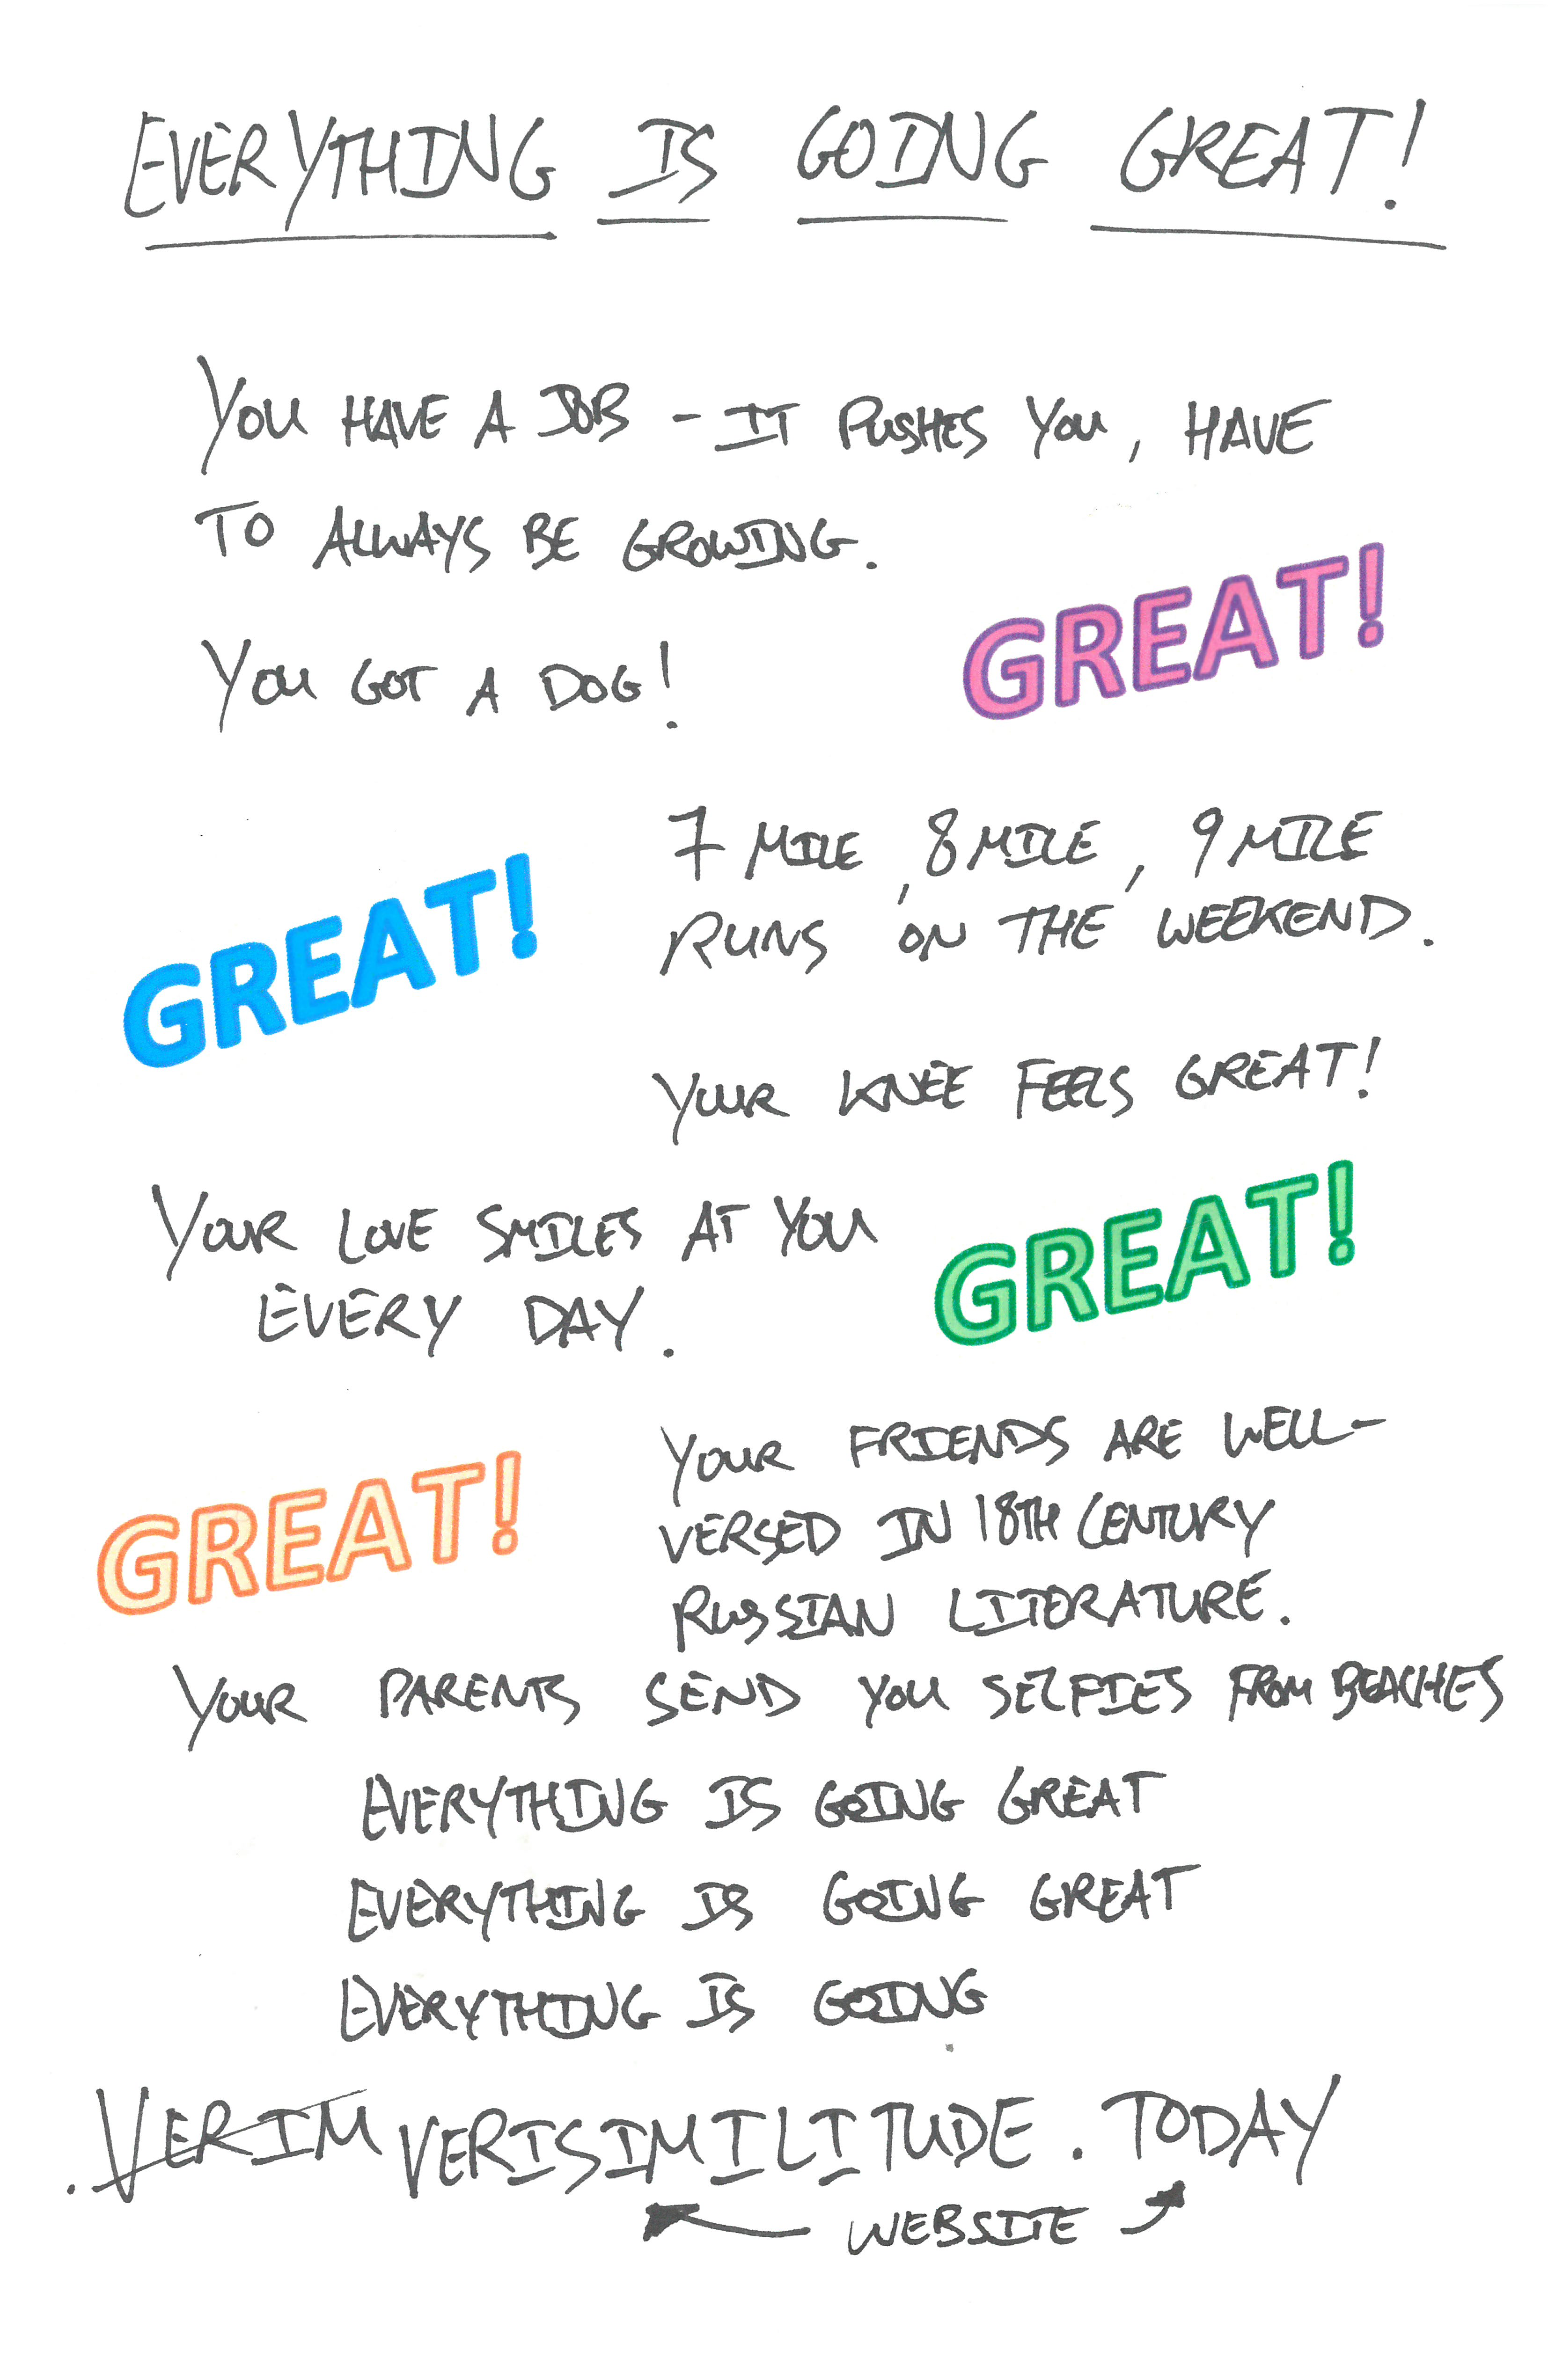 EVERYTHING IS GOING GREAT!
YOU HAVE A JOB - IT PUSHES YOU, HAVE
TO ALWAYS BE GROWING.
GREAT!
YOU GOT A DOG!
7 MILE, 8 MILE, 9 MILE
RUNS ON THE WEEKEND.
GREAT!
YOUR KNEE FEELS GREAT!
YOUR LOVE SMILES AT YOU
EVERY DAY.
GREAT!
YOUR FRIENDS ARE WELL-
VERSED IN 18TH CENTURY
RUSSIAN LITERATURE.
GREAT!
YOUR PARENTS SEND YOU SELFIES FROM BEACHES
EVERYTHING IS GOING GREAT
EVERYTHING IS GOING GREAT
EVERYTHING IS GOING
.VERIM VERISIMILITUDE.TODAY
WEBSITE